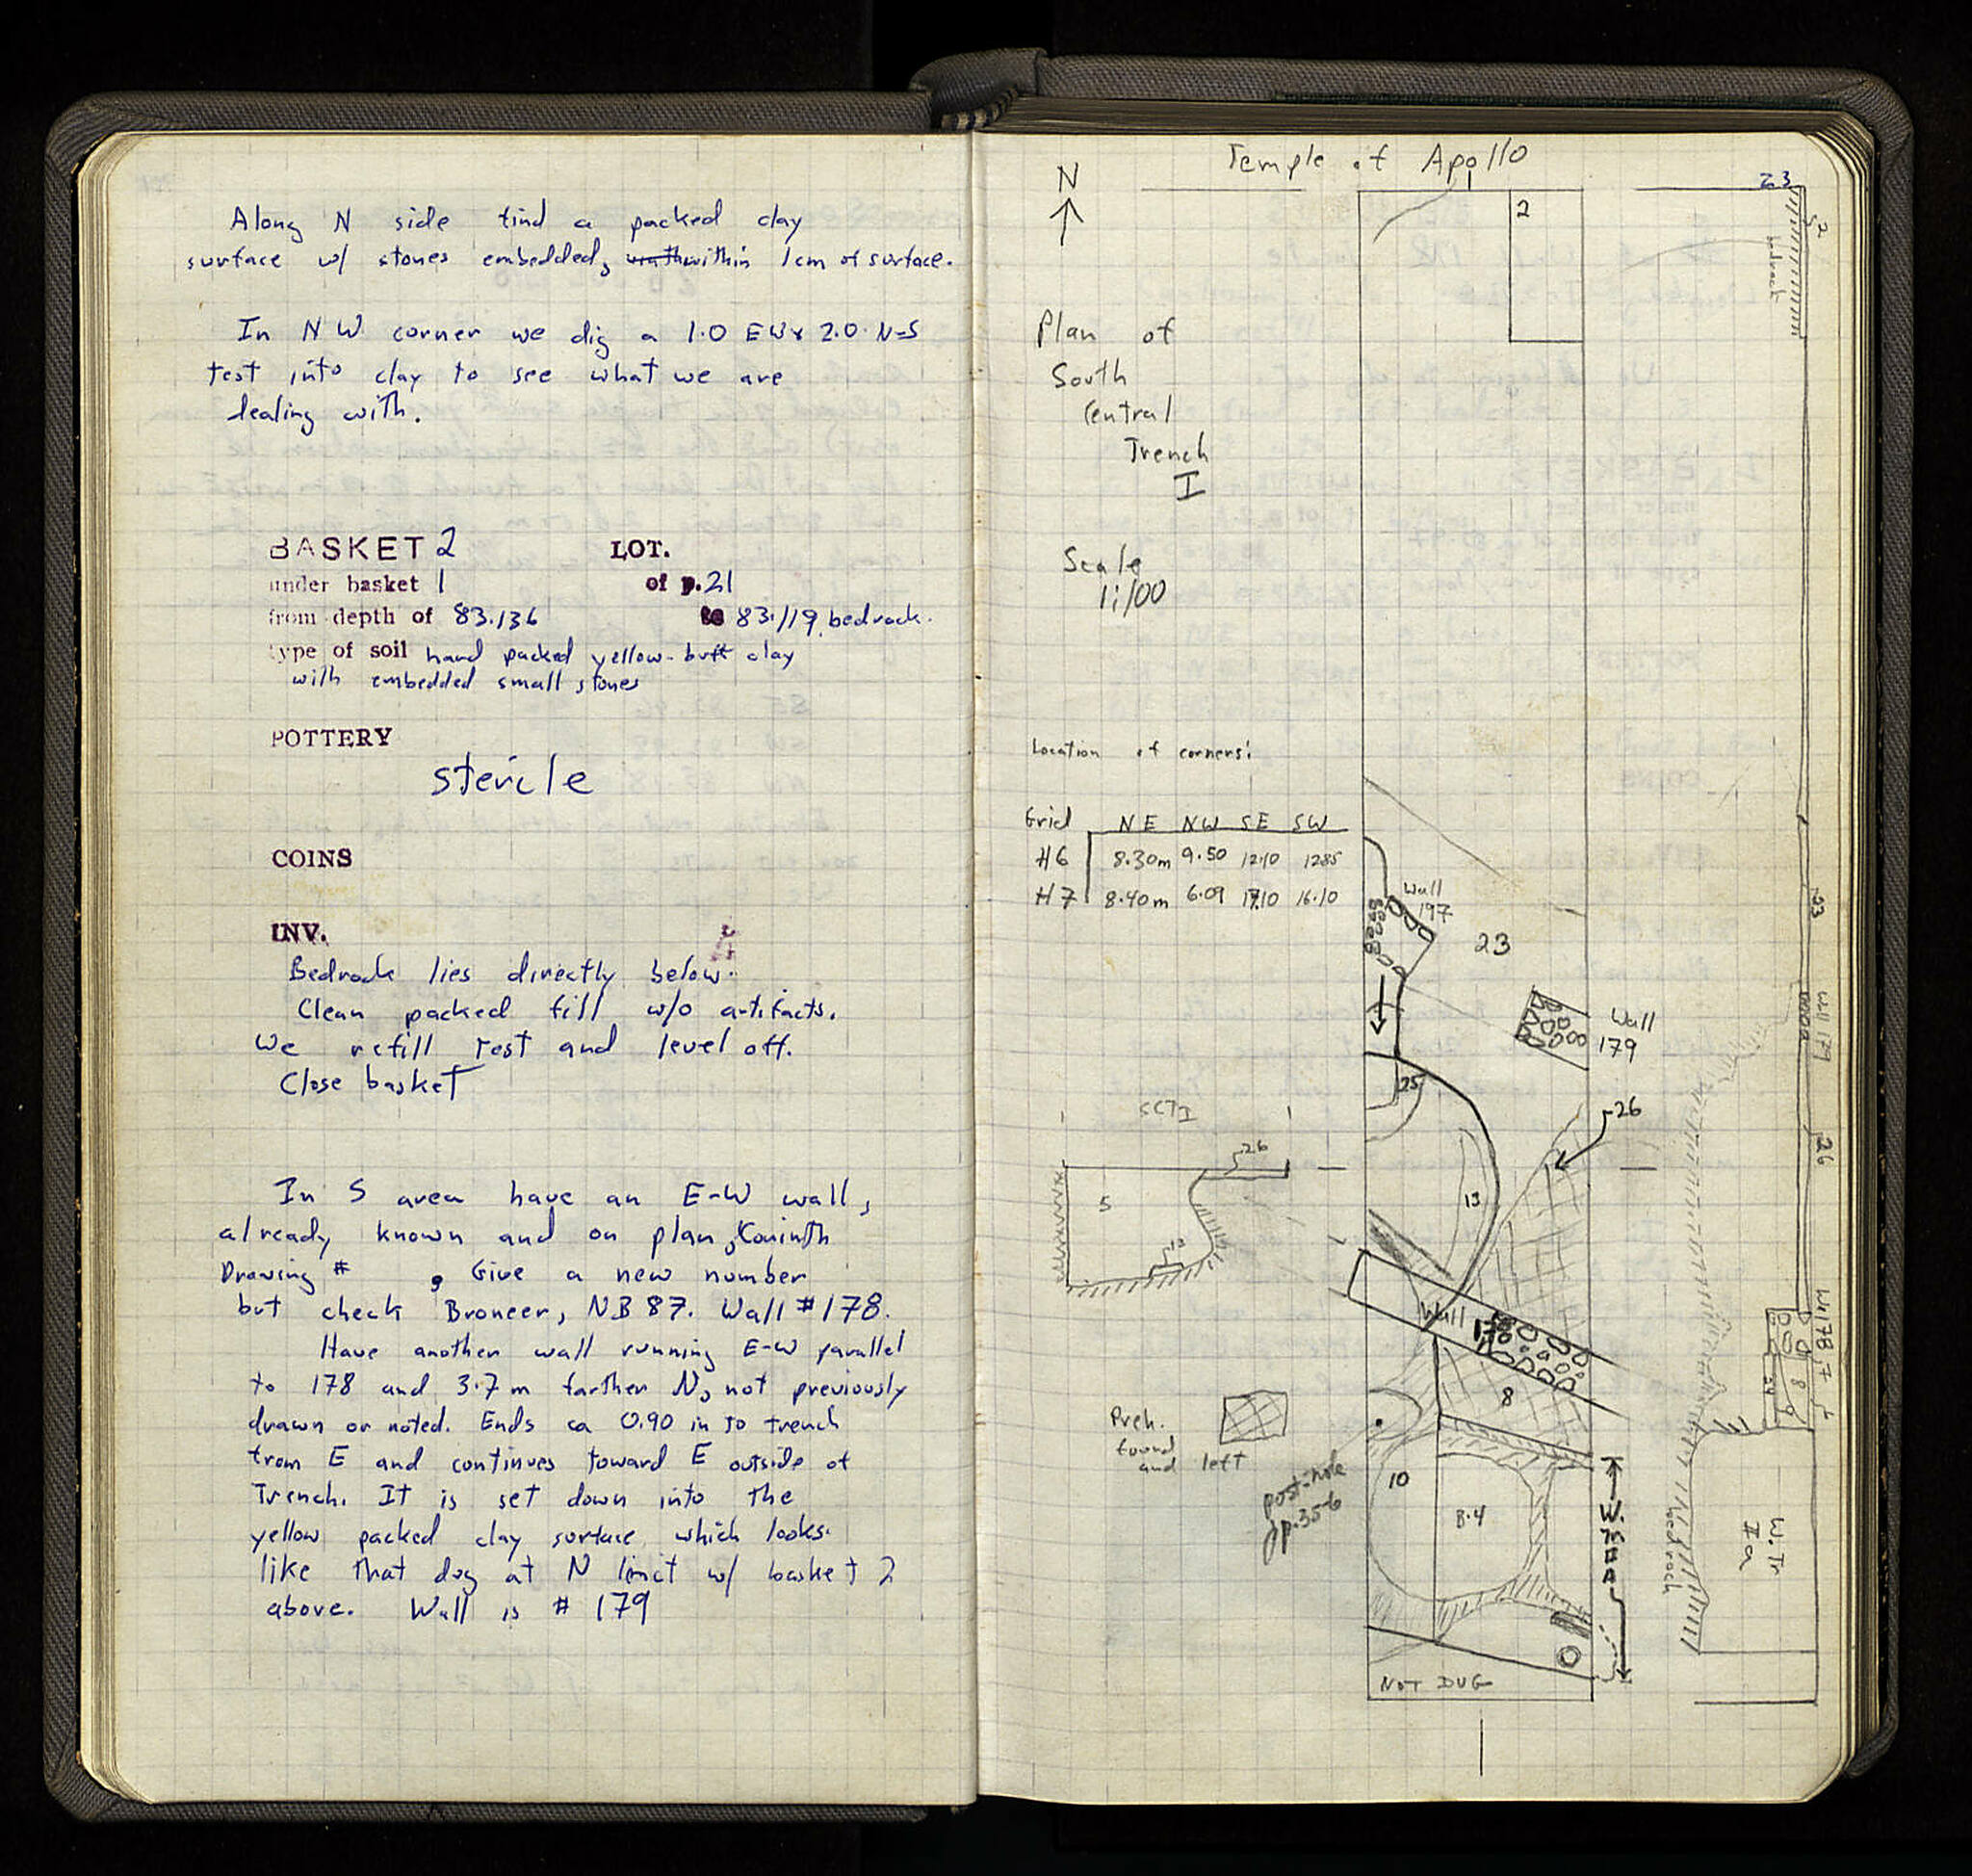 Along N side find a packed clay
surface w/ stones embedded, within 1cm of surface.
In NW corner we dig a 1.0 EW x 2.0 N-S
test into clay to see what we are
dealing with.
BASKET 2 LOT.
under basket 1 of p. 21
from depth of 83.136 to 83.119, bedrock.
type of soil hard packed yellow-buff clay
with embedded small stones
POTTERY
sterile
COINS
INV.
Bedrock lies directly below.
Clean packed fill w/o artifacts.
We refill test and level off.
Close basket
In S area have an E-W wall,
already known and on plan, Corinth
Drawing # , Give a new number
but check Broneer, NB 87. Wall #178.
Have another wall running E-W parallel
to 178 and 3.7 m farther N, not previously
drawn or noted. Ends ca 0.90 in to trench
from E and continues toward E outside of
Trench. It is set down into the
yellow packed clay surface which looks
like that dug at N limit w/ basket 2
above. Wall is # 179
Temple of Apollo
N
23
2
2
bedrock
Plan of
South
Central
Trench
I
Scale
1:100
Location of corners:
Grid NE NW SE SW
H6 8.30m 9.50 12.10 12.85
H7 8.40m 6.09 17.10 16.10
Wall
197
23
23
Wall
179
Wall 179
25
26
26
SCT I
26
5
13
13
Wall
178
W178
7
8
8
Preh.
found
and left
post-hole
pp. 35-6
10
8.4
bedrock
W. Tr
II a
NOT DUG